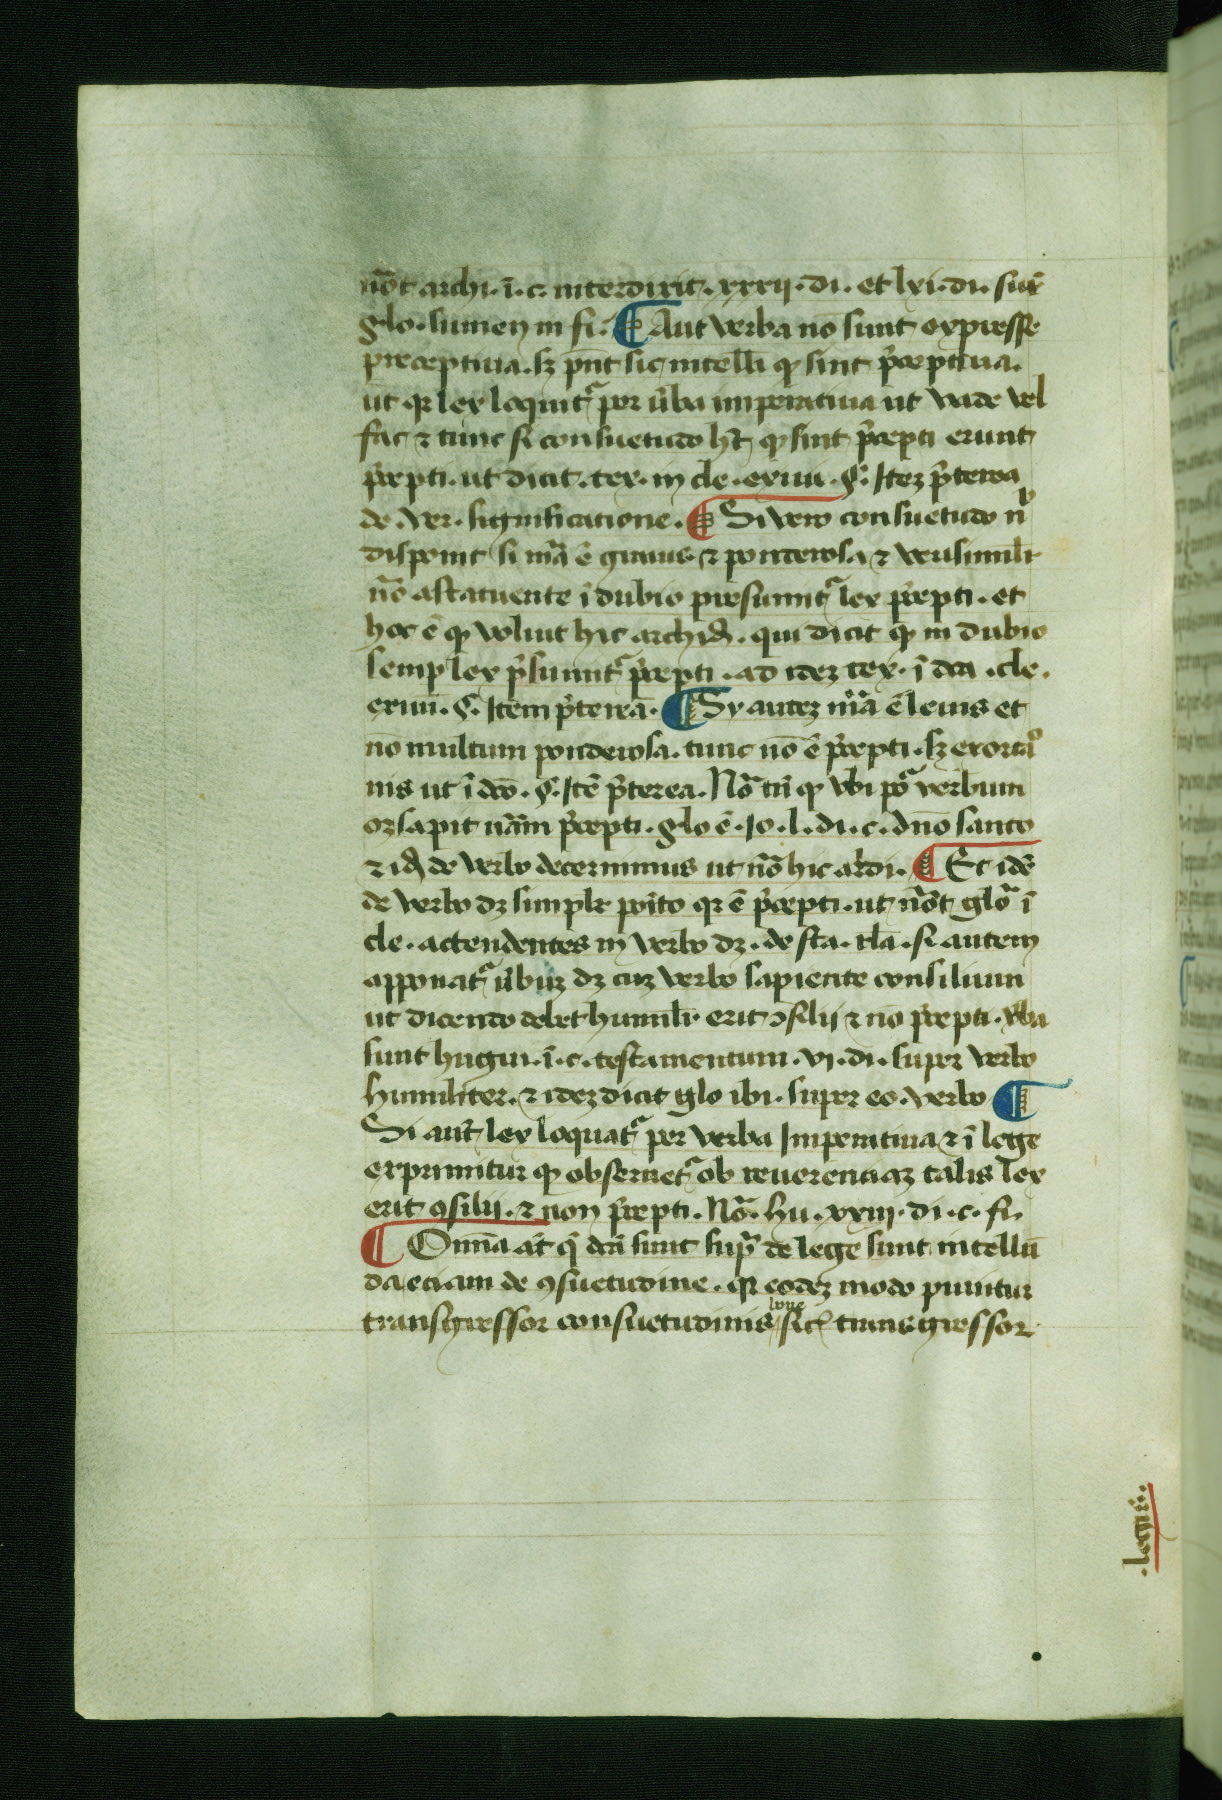 nōt archi. ī. c. interdixit. xxxij. di. et lxi. di. sup̄
glo. sumen in fi. ¶ Aut verba nō sunt expresse
preceptiua. sz pn̄t sic intelli ꝙ sint p̄ceptiua.
ut qꝛ lex loquit᷑ per ūba imperatiua ut vade vel
fac ⁊ tunc si consuetudo hꝫ ꝙ sint p̄cepti erunt
p̄cepti. ut dicit. tex. in cle. exiui. §. Itez p̄terea
de. ver. significatione. ¶ Si vero consuetudo n̄
disponit si mā ē grauis ⁊ ponderosa ⁊ verisimilr
nō astatuente ī dubio presumit᷑ lex p̄cepti. et
hoc ē ꝙ voluit hic archid. qui dicit ꝙ in dubio
semp lex p̄sumit᷑ p̄cepti. ad idez tex. ī dca .cle.
exiui. §. Item p̄tereā. ¶ Sy autez mā̄ ē leuis et
nō multum ponderosa. tunc nō ē p̄cepti. sz exortaͦ
nis ut ī dc̄o. §. Itē p̄terea. Nō tn̄ ꝙ vbi poͣ verbum
oꝫ sapit nām p̄cepti. glo ē. Io. l. di. c. dn̄o sancto
⁊ id de verbo decernimus ut nō hic ardi. ¶ Et idē
de verbo dz simplr poīto qꝛ ē p̄cepti. ut nōt glo ī
cle. attendentes in verbo dz. de sta. rla. si autem
apponat᷑ ūbuz dz cuz verbo sapiente consilium
ut dicendo debet humilr erit ꝯsilij ⁊ nō p̄cepti. vba
sunt hugui. ī. c. testamentum. vj. di. super verbo
humiliter. ⁊ idez dicit glo ibi. super eo. verbo ¶
Si aut̄ lex loquat᷑ per verba Imperatiua ⁊ ī lege
exprimitur ꝙ obseruet᷑ ob reuerenciaz talis lex
erit ꝯsilij. ⁊ non p̄cepti. Nō. hu. xxiij. di. c. fi.
¶ Omnīa at̄ q̄ dcā sunt sup̄ de lege sunt intellīn
da eciam de ꝯsuetudine. qꝛ eodez modo punitur
transgressor consuetudinis lune sic̄ transgressor
.legis.